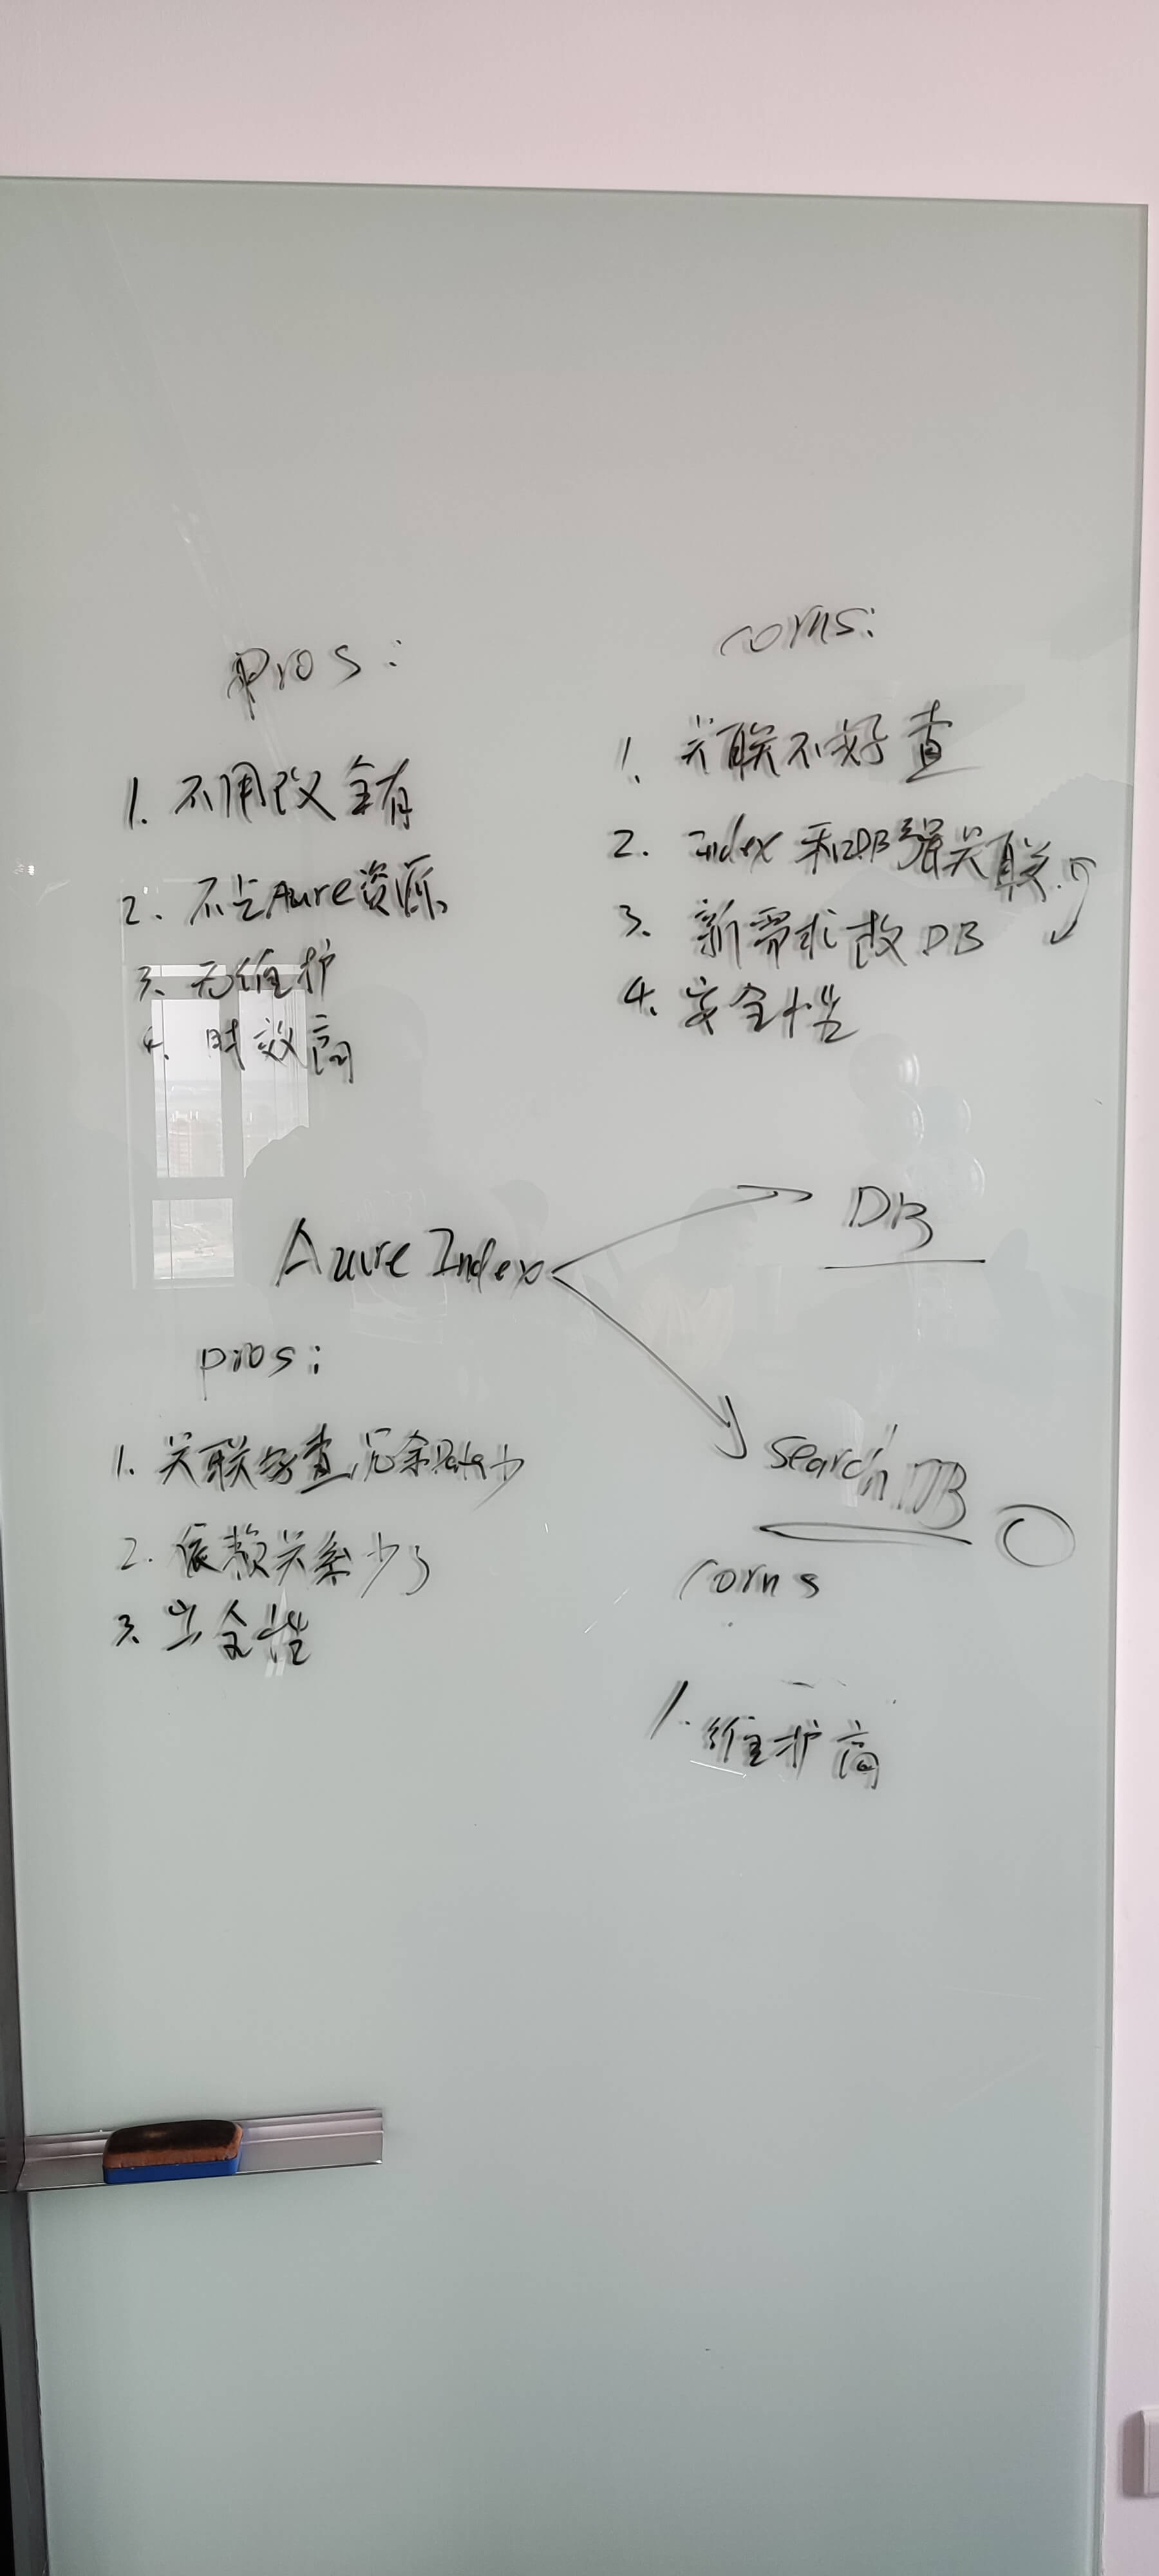 pros:
1. 不用改 全有
2. 不占Azure资源
3. 无维护
4. 时效高
corns:
1. 关联不好查
2. Index和DB强关联
3. 新需求改DB
4. 安全性
Azure Index
DB
search DB
pros:
1. 关联好查, 冗余Data少
2. 依赖关系少了
3. 安全性
corns
1. 维护高